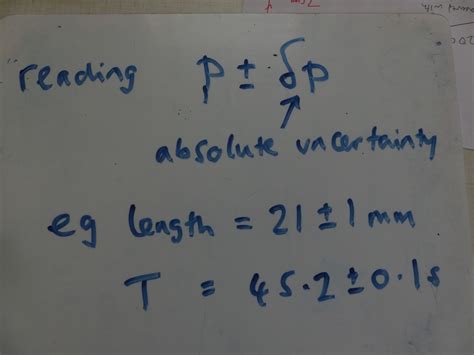 reading p ± δp
absolute uncertainty
eg length = 21 ± 1 mm
T = 45.2 ± 0.1s